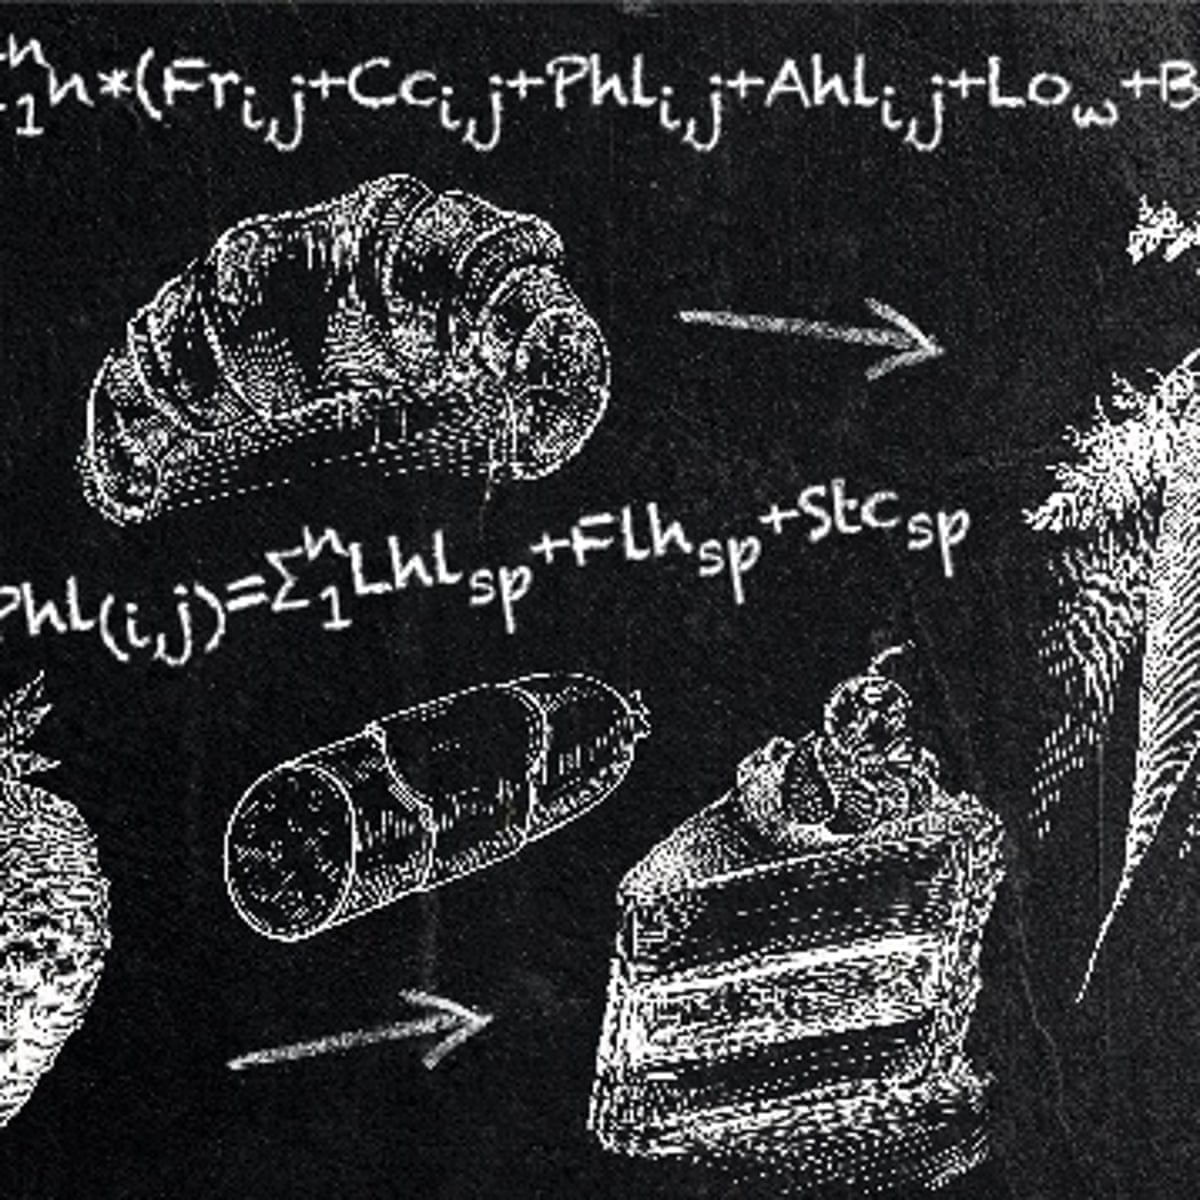 ⁿ₁n*(Frᵢ,ⱼ+Ccᵢ,ⱼ+Phlᵢ,ⱼ+Ahlᵢ,ⱼ+Lo_w+B
Phl(i,j)=∑ⁿ₁Lhl_sp+Flh_sp+Stc_sp